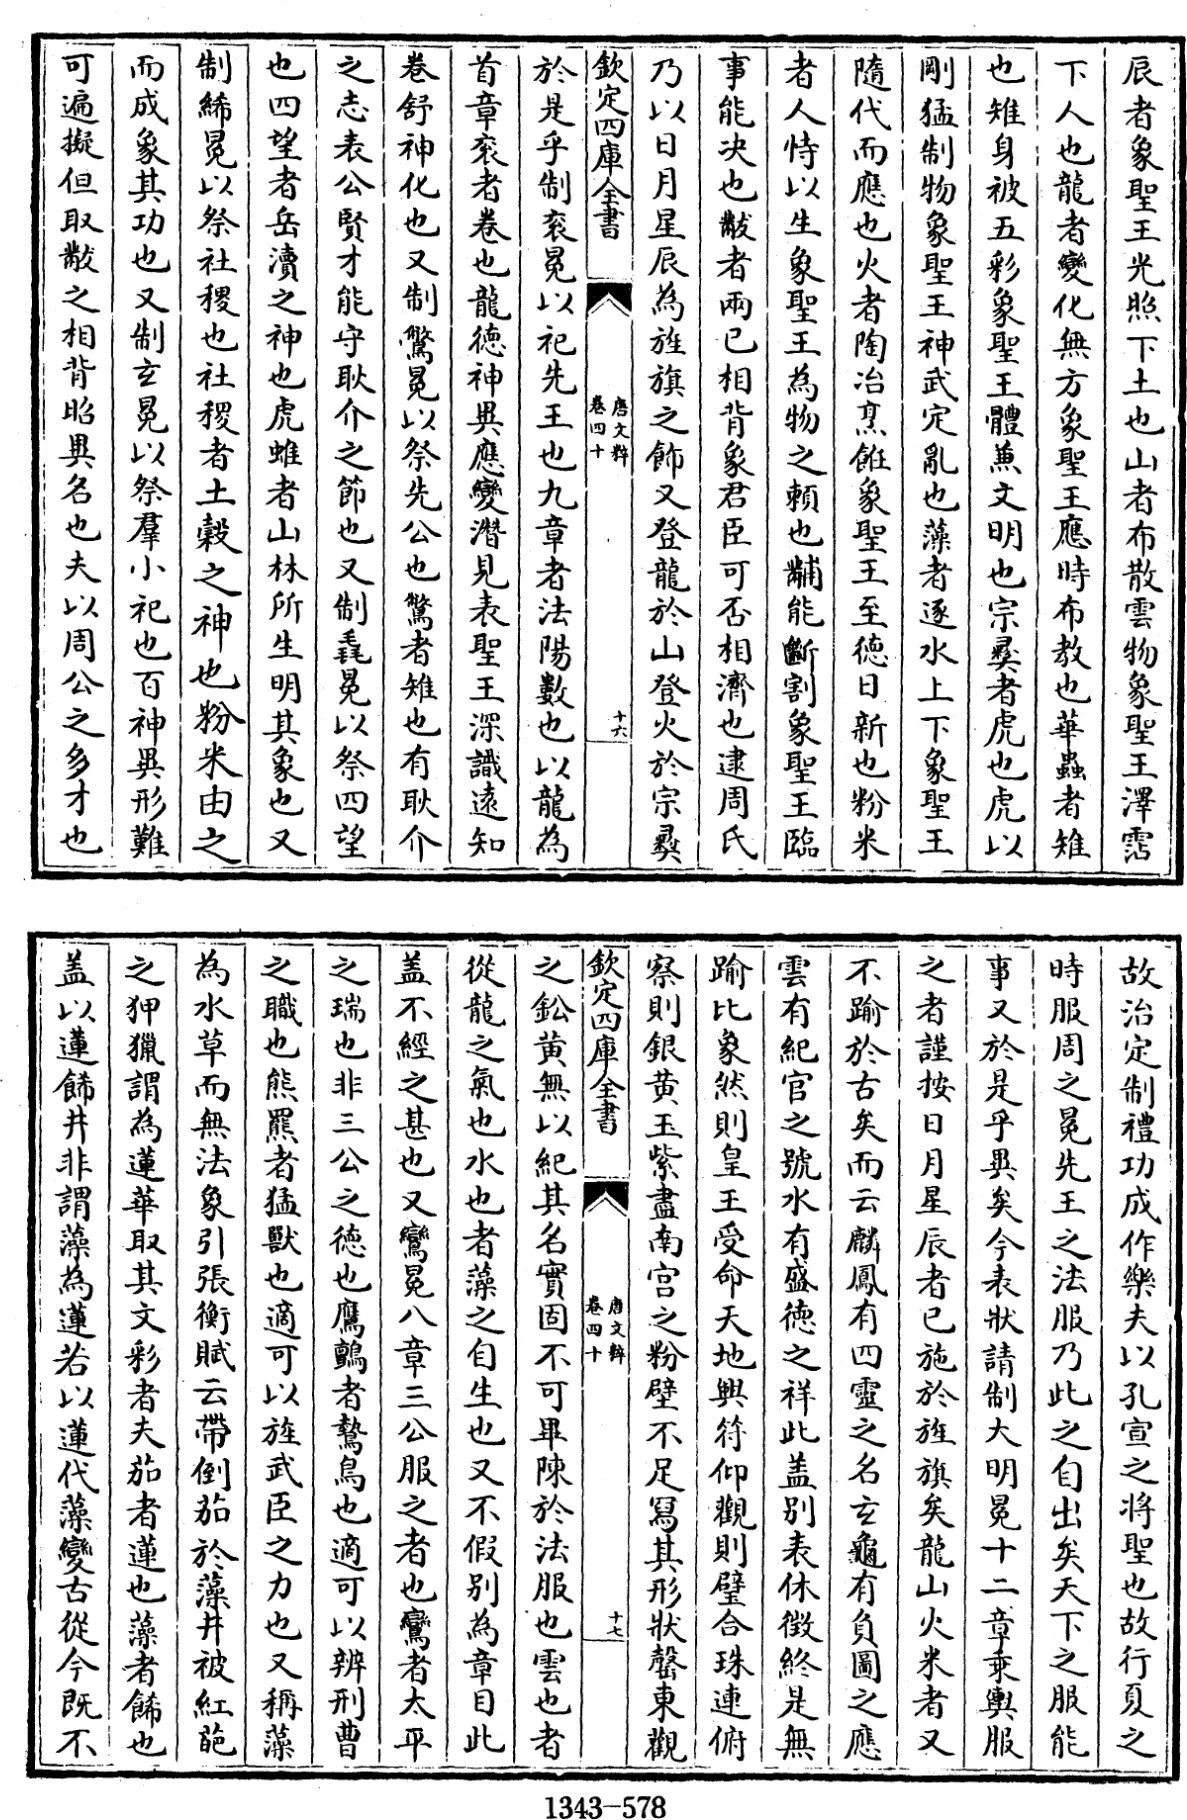 辰者象聖王光照下土也山者布散雲物象聖王澤霑
下人也龍者變化無方象聖王應時布教也華蟲者雉
也雉身被五彩象聖王體兼文明也宗彞者虎也虎以
剛猛制物象聖王神武定亂也藻者逐水上下象聖王
隨代而應也火者陶冶烹飪象聖王至德日新也粉米
者人恃以生象聖王為物之頼也黼能斷割象聖王臨
事能决也黻者兩已相背象君臣可否相濟也逮周氏
乃以日月星辰為旌旗之飾又登龍於山登火於宗彞
欽定四庫全書
唐文粹
卷四十
十六
於是乎制衮冕以祀先王也九章者法陽數也以龍為
首章衮者卷也龍德神異應變潛見表聖王深識遠知
卷舒神化也又制鷩冕以祭先公也鷩者雉也有耿介
之志表公賢才能守耿介之節也又制毳冕以祭四望
也四望者岳瀆之神也虎蜼者山林所生明其象也又
制絺冕以祭社稷也社稷者土穀之神也粉米由之
而成象其功也又制玄冕以祭羣小祀也百神異形難
可遍擬但取黻之相背昭異名也夫以周公之多才也
故治定制禮功成作樂夫以孔宣之将聖也故行夏之
時服周之冕先王之法服乃此之自出矣天下之服能
事又於是乎異矣今表狀請制大明冕十二章乘輿服
之者謹按日月星辰者已施於旌旗矣龍山火米者又
不踰於古矣而云麟鳳有四靈之名玄龜有負圖之應
雲有紀官之號水有盛德之祥此盖别表休徴終是無
踰比象然則皇王受命天地興符仰觀則璧合珠連俯
察則銀黄玉紫盡南宫之粉壁不足寫其形狀罄東觀
欽定四庫全書
唐文粹
卷四十
十七
之鈆黄無以紀其名實固不可畢陳於法服也雲也者
從龍之氣也水也者藻之自生也又不假别為章目此
盖不經之甚也又鸞冕八章三公服之者也鸞者太平
之瑞也非三公之德也鷹鸇者鷙鳥也適可以辨刑曹
之職也熊羆者猛獸也適可以旌武臣之力也又稱藻
為水草而無法象引張衡賦云帶倒茄於藻井被紅葩
之狎獵謂為蓮華取其文彩者夫茄者蓮也藻者飾也
盖以蓮飾井非謂藻為蓮若以蓮代藻變古從今既不
1343-578